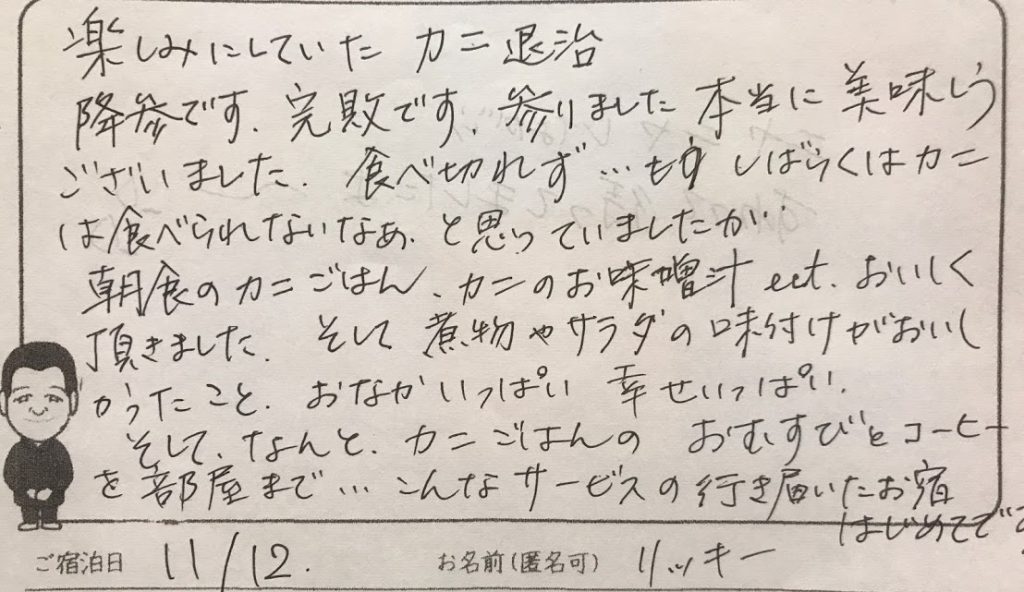 楽しみにしていた カニ退治
降参です、完敗です、参りました 本当に 美味しう
ございました。 食べ切れず…もう しばらくはカニ
は食べられないなぁ、と思っていましたが、
朝食のカニごはん、カニのお味噌汁 ect. おいしく
頂きました。 そして 煮物やサラダの味付けがおいし
かったこと。 おなかいっぱい 幸せいっぱい。
そして、なんと、カニごはんの おむすびとコーヒー
を部屋まで… こんなサービスの行き届いたお宿
はじめてです
ご宿泊日 11/12. お名前(匿名可) リッキー